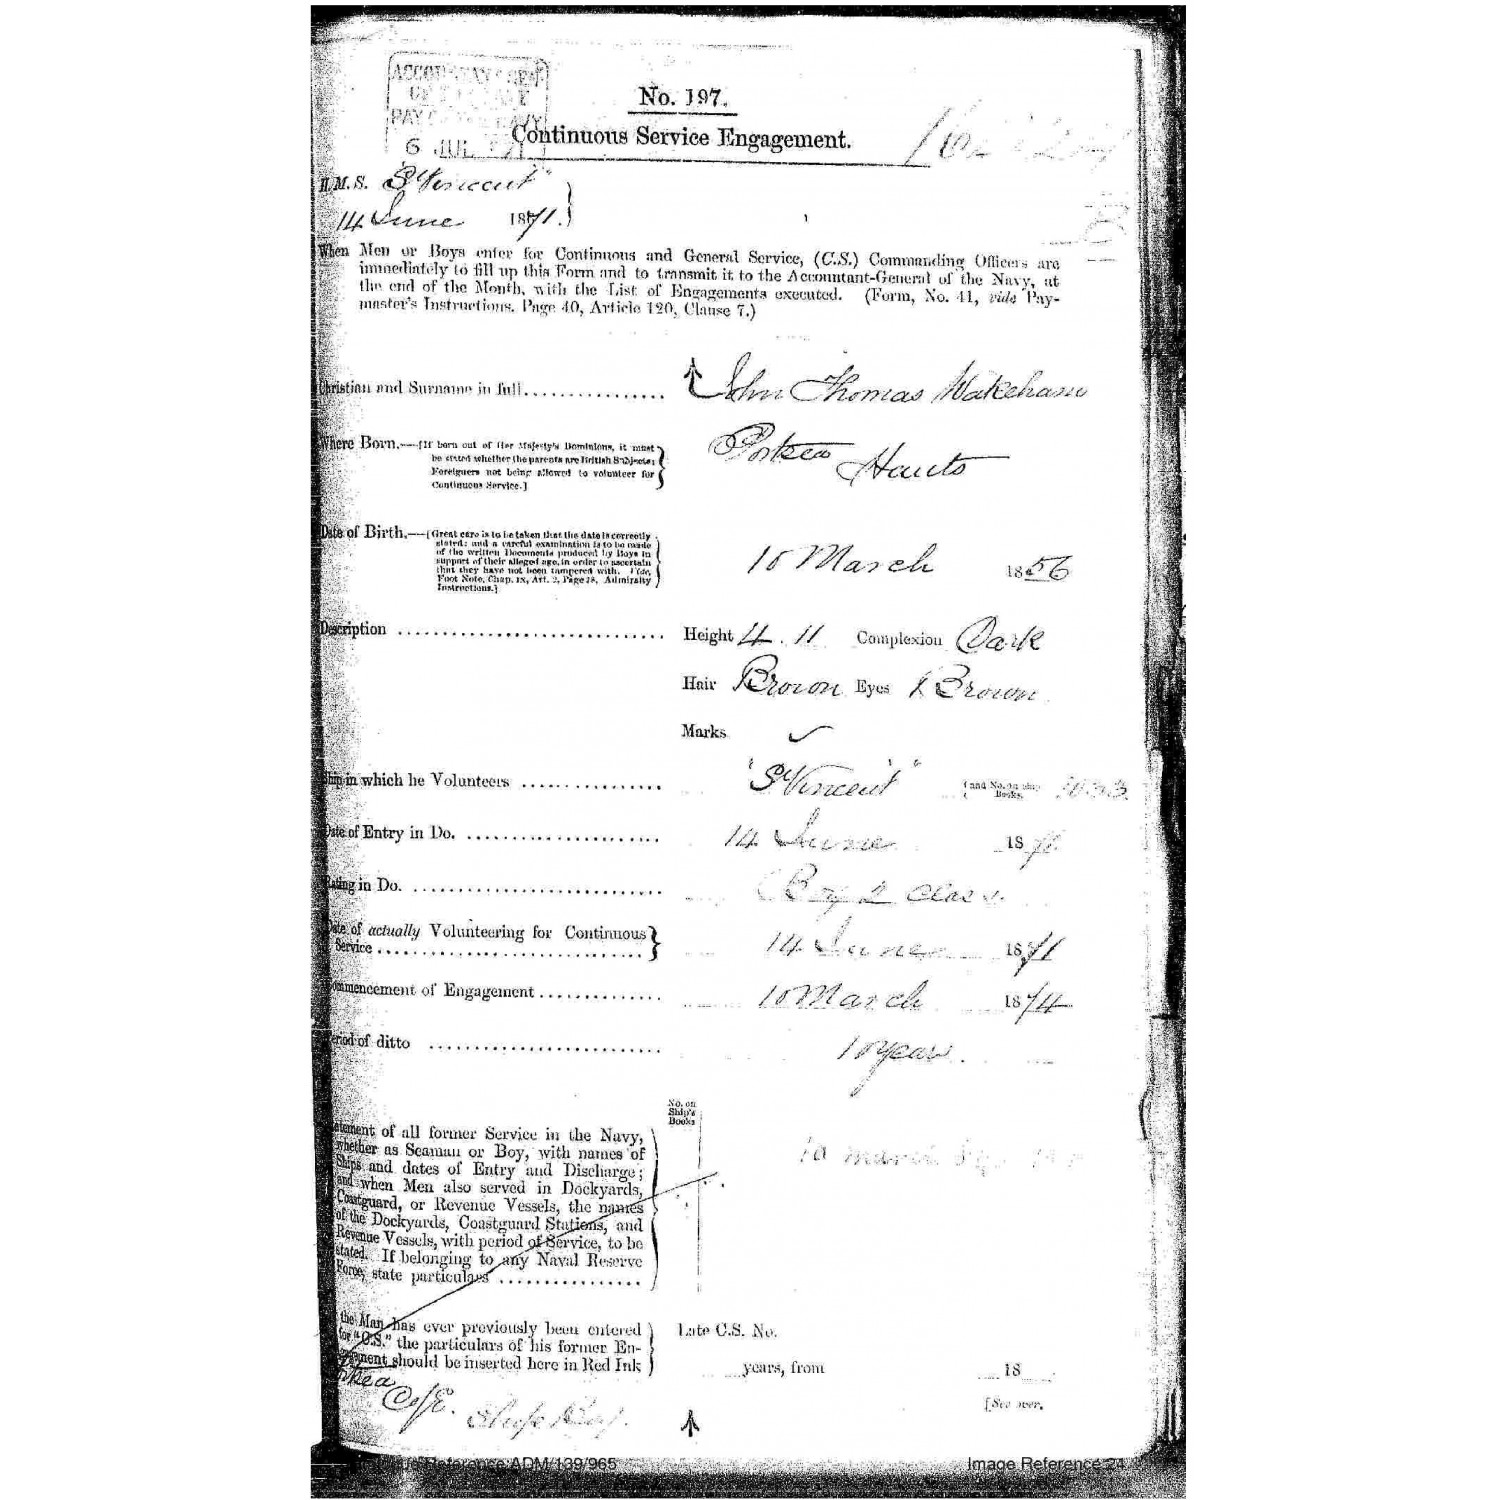 No. 197.
Continuous Service Engagement.
6 JUL
H.M.S. "St Vincent"
14 June 1871.
When Men or Boys enter for Continuous and General Service, (C.S.) Commanding Officers are
immediately to fill up this Form and to transmit it to the Accountant-General of the Navy, at
the end of the Month, with the List of Engagements executed. (Form, No. 41, vide Pay-
master's Instructions, Page 40, Article 120, Clause 7.)
Christian and Surname in full................ John Thomas Wakeham
Where Born.—[If born out of Her Majesty's Dominions, it must
be stated whether the parents are British Subjects;
Foreigners not being allowed to volunteer for
Continuous Service.]
Portsea Hants
Date of Birth.—[Great care is to be taken that the date is correctly
stated; and a careful examination is to be made
of the written Documents produced by Boys in
support of their alleged age, in order to ascertain
that they have not been tampered with. Vide,
Foot Note, Chap. ix, Art. 2, Page 78, Admiralty
Instructions.]
10 March 1856
Description .............................. Height 4. 11 Complexion Dark
Hair Brown Eyes Brown
Marks
Ship in which he Volunteers ................ "St Vincent" (and No. on ship Books.
Date of Entry in Do. ...................... 14 June 1871
Rating in Do. ............................ Boy 2 Class.
Date of actually Volunteering for Continuous
Service .............................. 14 June 1871
Commencement of Engagement .............. 10 March 1874
Period of ditto .......................... 10 year
No. on
Ship's
Books
Statement of all former Service in the Navy,
whether as Seaman or Boy, with names of
Ships and dates of Entry and Discharge;
and when Men also served in Dockyards,
Coastguard, or Revenue Vessels, the names
of the Dockyards, Coastguard Stations, and
Revenue Vessels, with period of Service, to be
stated. If belonging to any Naval Reserve
Force, state particulars ................
10 March
the Man has ever previously been entered
for "C.S." the particulars of his former En-
gagement should be inserted here in Red Ink
Late C.S. No.
years, from 18
C of E.
[See over.
Reference:ADM/139/965
Image Reference:24